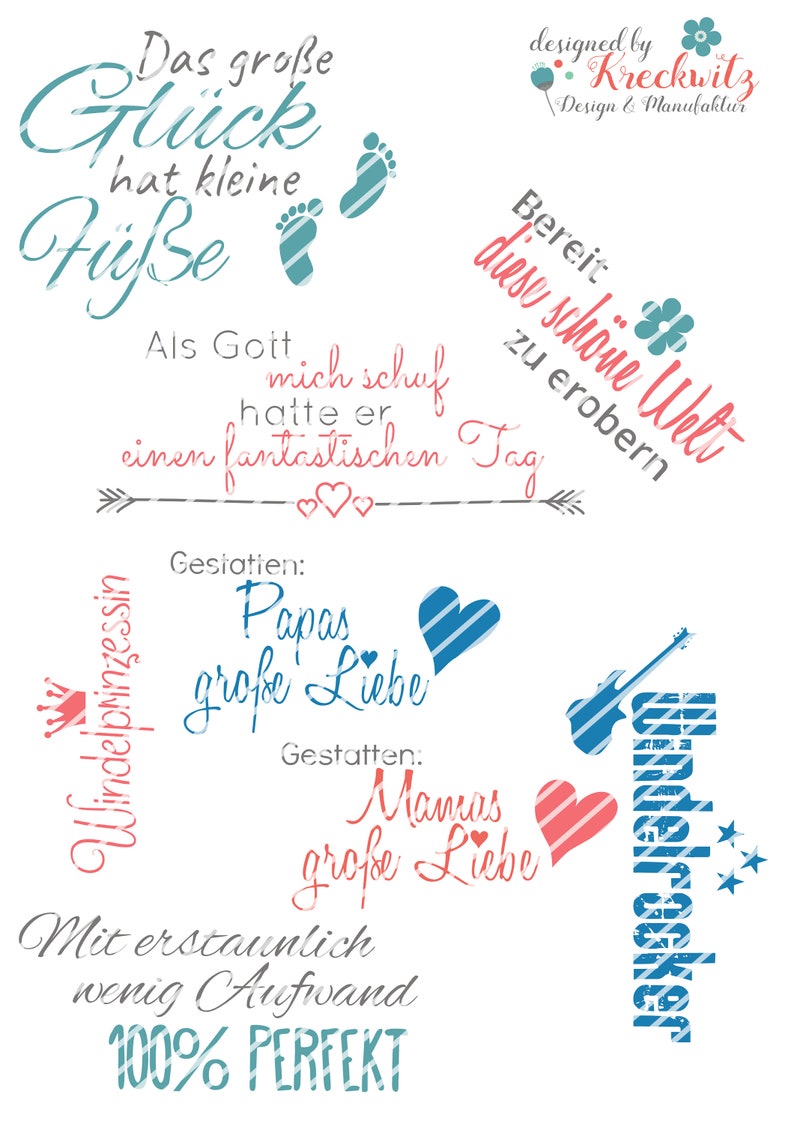 Das große
Glück
hat kleine
Füße
designed by
Kreckwitz
Design & Manufaktur
Bereit
diese schöne Welt
zu erobern
Als Gott
mich schuf
hatte er
einen fantastischen Tag
Gestatten:
Papas
große Liebe
Windelprinzessin
Gestatten:
Mamas
große Liebe
Windelrocker
Mit erstaunlich
wenig Aufwand
100% PERFEKT